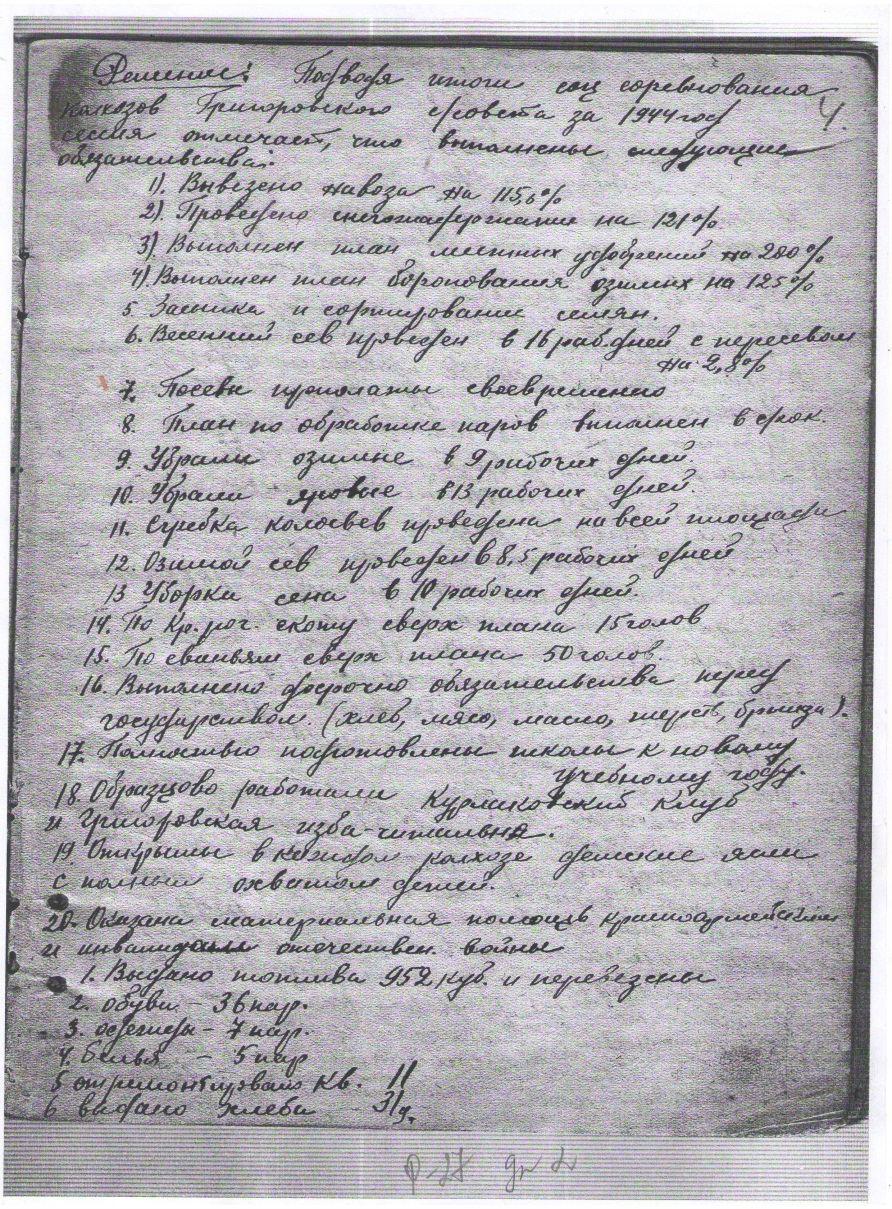 Решение: Подводя итоги соц соревнования
колхозов Григоровского с/совета за 1944 год
4.
сессия отмечает, что выполнены следующие
обязательства:
1). Вывезено навоза на 115,6%
2). Проведено снегозадержание на 121%
3). Выполнен план местных удобрений на 200%
4). Выполнен план боронования озимых на 125%
5. Засыпка и сортирование семян.
6. Весенний сев проведен в 16 раб.дней с пересевом
на 2,8%
7. Посевы прополаты своевременно
8. План по обработке паров выполнен в срок.
9. Убрали озимые в 9 рабочих дней.
10. Убрали яровые в 13 рабочих дней.
11. Сгребка колосьев проведена на всей площади
12. Озимой сев проведен в 8,5 рабочих дней
13 Уборка сена в 10 рабочих дней.
14. По кр. рог. скоту сверх плана 15 голов
15. По свиньям сверх плана 50 голов.
16. Выполнено досрочно обязательства перед
государством. (хлеб, мясо, масло, шерсть, брынза).
17. Полностью подготовлены школы к новому
учебному году.
18. Образцово работали Курлаковский клуб
и Григоровская изба-читальня.
19. Открыты в каждом колхозе детские ясли
с полным охватом детей.
20. Оказана материальная помощь красноармейским
и инвалидам отечествен. войны
1. Выдано топлива 952 куб. и перевезены
2. обуви – 36 пар.
3. одежды – 7 пар.
4. белья – 5 пар
5 отремонтировано кв. 11
6 выдано хлеба – 31 ц.